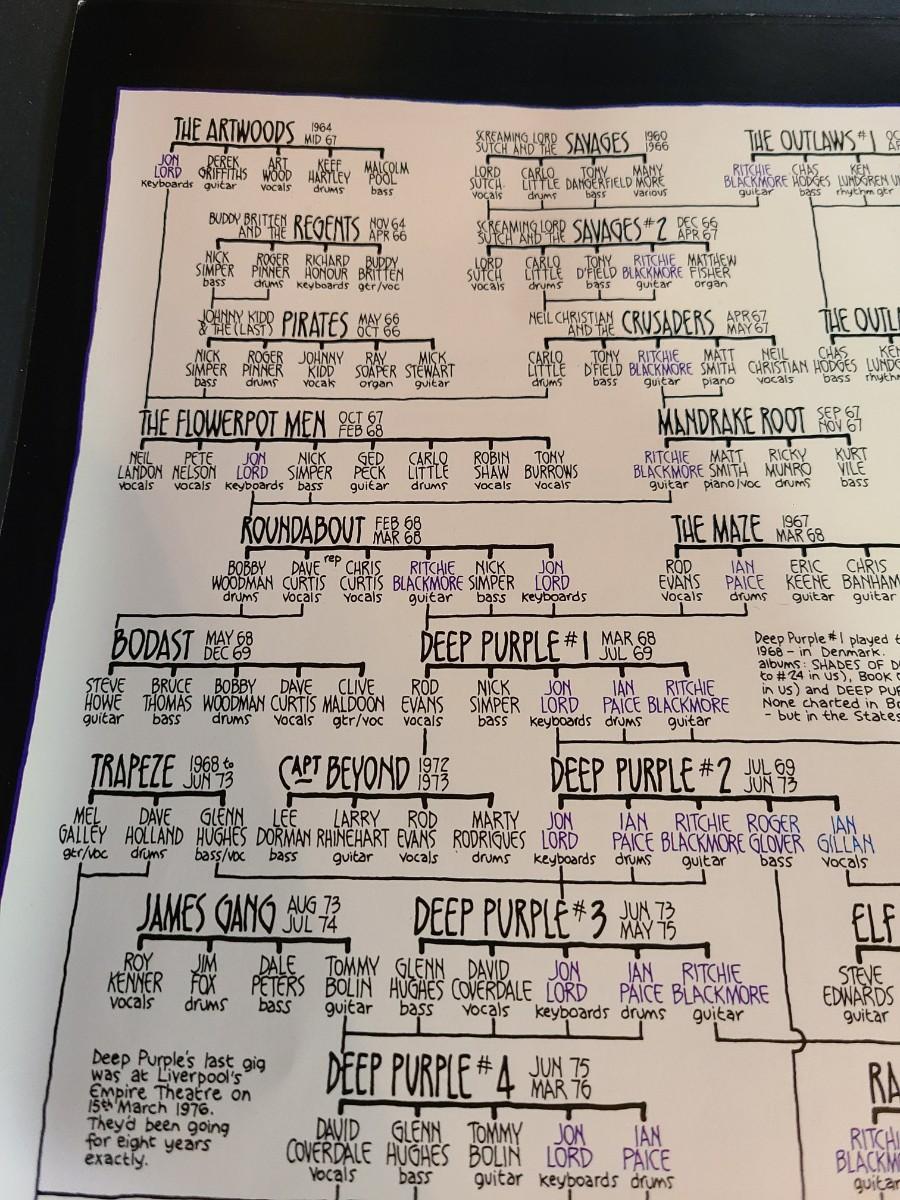 THE ARTWOODS 1964 MID 67
JON LORD keyboards
DEREK GRIFFITHS guitar
ART WOOD vocals
KEEF HARTLEY drums
MALCOLM POOL bass
SCREAMING LORD SUTCH AND THE SAVAGES 1960 1966
LORD SUTCH vocals
CARLO LITTLE drums
TONY DANGERFIELD bass
MANY MORE various
THE OUTLAWS #1
RITCHIE BLACKMORE guitar
CHAS HODGES bass
KEN LUNDGREN rhythm gtr
BUDDY BRITTEN AND THE REGENTS NOV 64 APR 66
NICK SIMPER bass
ROGER PINNER drums
RICHARD HONOUR keyboards
BUDDY BRITTEN gtr/voc
SCREAMING LORD SUTCH AND THE SAVAGES #2 DEC 66 APR 67
LORD SUTCH vocals
CARLO LITTLE drums
TONY D'FIELD bass
RITCHIE BLACKMORE guitar
MATTHEW FISHER organ
JOHNNY KIDD & THE (LAST) PIRATES MAY 66 OCT 66
NICK SIMPER bass
ROGER PINNER drums
JOHNNY KIDD vocals
RAY SOAPER organ
MICK STEWART guitar
NEIL CHRISTIAN AND THE CRUSADERS APR 67 MAY 67
CARLO LITTLE drums
TONY D'FIELD bass
RITCHIE BLACKMORE guitar
MATT SMITH piano
NEIL CHRISTIAN vocals
THE OUTL
CHAS HODGES bass
KEN LUND rhythm
THE FLOWERPOT MEN OCT 67 FEB 68
NEIL LANDON vocals
PETE NELSON vocals
JON LORD keyboards
NICK SIMPER bass
GED PECK guitar
CARLO LITTLE drums
ROBIN SHAW vocals
TONY BURROWS vocals
MANDRAKE ROOT SEP 67 NOV 67
RITCHIE BLACKMORE guitar
MATT SMITH piano/voc
RICKY MUNRO drums
KURT VILE bass
ROUNDABOUT FEB 68 MAR 68
BOBBY WOODMAN drums
DAVE CURTIS vocals
rep
CHRIS CURTIS vocals
RITCHIE BLACKMORE guitar
NICK SIMPER bass
JON LORD keyboards
THE MAZE 1967 MAR 68
ROD EVANS vocals
IAN PAICE drums
ERIC KEENE guitar
CHRIS BANHAM guitar
BODAST MAY 68 DEC 69
STEVE HOWE guitar
BRUCE THOMAS bass
BOBBY WOODMAN drums
DAVE CURTIS vocals
CLIVE MALDOON gtr/voc
DEEP PURPLE #1 MAR 68 JUL 69
ROD EVANS vocals
NICK SIMPER bass
JON LORD keyboards
IAN PAICE drums
RITCHIE BLACKMORE guitar
Deep Purple #1 played t
1968 - in Denmark.
albums: SHADES OF D
to #24 in US), BOOK
in US) and DEEP PUR
None charted in Br
- but in the States
TRAPEZE 1968 to JUN 73
MEL GALLEY gtr/voc
DAVE HOLLAND drums
GLENN HUGHES bass/voc
CAPT BEYOND 1972 1973
LEE DORMAN bass
LARRY RHINEHART guitar
ROD EVANS vocals
MARTY RODRIGUES drums
DEEP PURPLE #2 JUL 69 JUN 73
JON LORD keyboards
IAN PAICE drums
RITCHIE BLACKMORE guitar
ROGER GLOVER bass
IAN GILLAN vocals
JAMES GANG AUG 73 JUL 74
ROY KENNER vocals
JIM FOX drums
DALE PETERS bass
TOMMY BOLIN guitar
DEEP PURPLE #3 JUN 73 MAY 75
GLENN HUGHES bass
DAVID COVERDALE vocals
JON LORD keyboards
IAN PAICE drums
RITCHIE BLACKMORE guitar
ELF
STEVE EDWARDS guitar
Deep Purple's last gig
was at Liverpool's
Empire Theatre on
15th March 1976.
They'd been going
for eight years
exactly.
DEEP PURPLE #4 JUN 75 MAR 76
DAVID COVERDALE vocals
GLENN HUGHES bass
TOMMY BOLIN guitar
JON LORD keyboards
IAN PAICE drums
RA
RITCHI BLACKM guitar